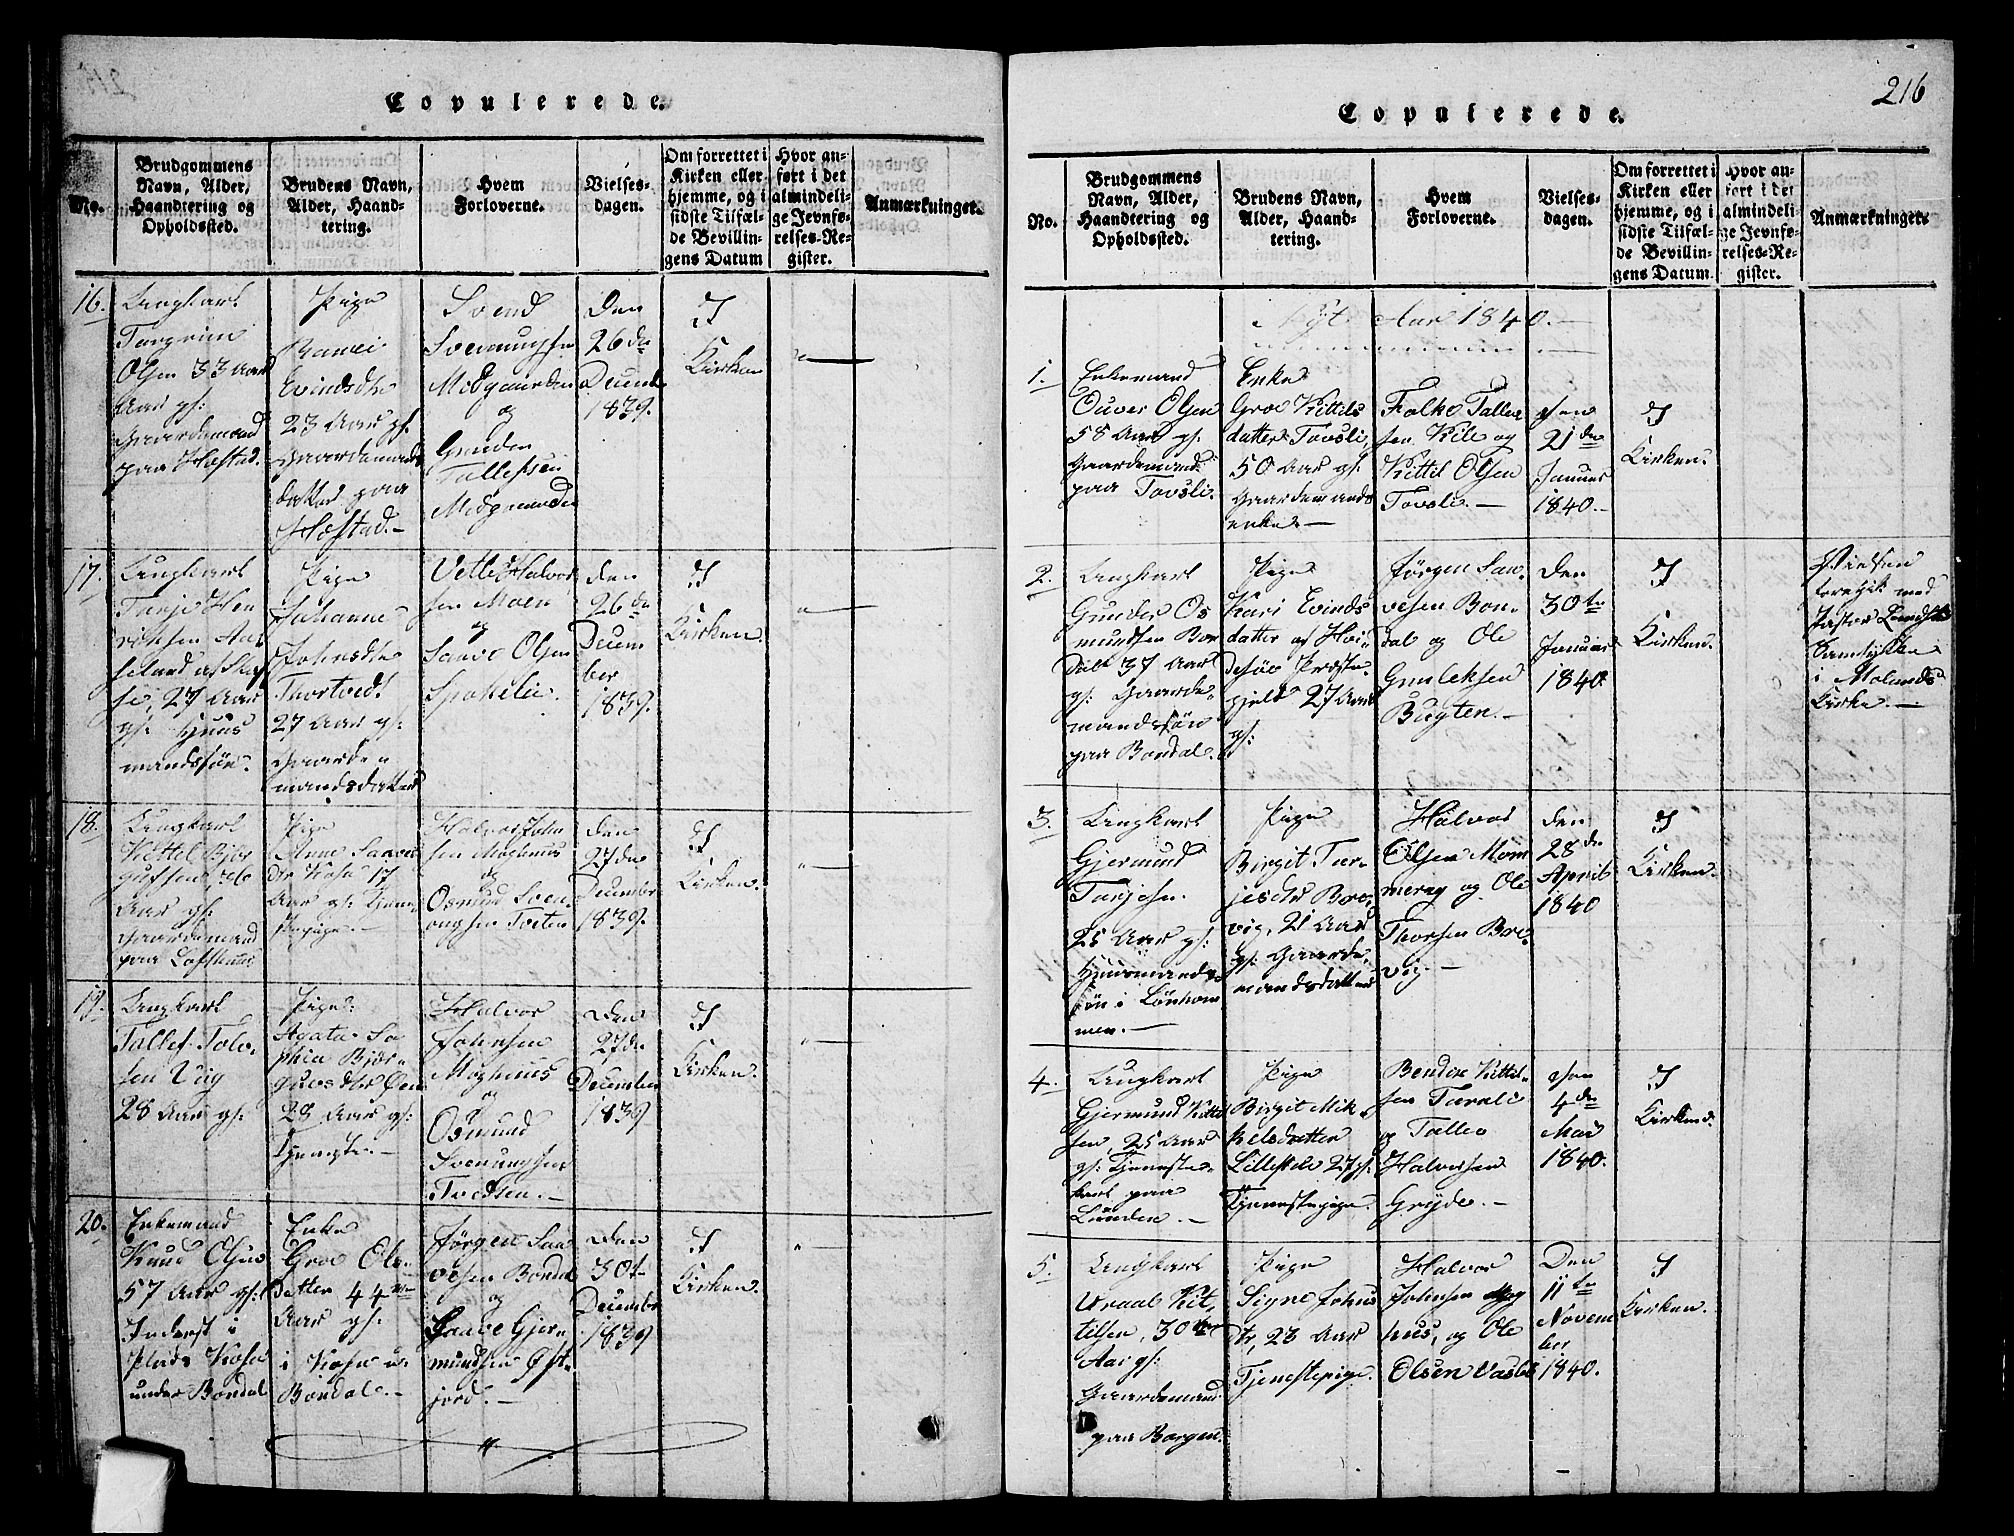 Copulerede.
No.
Brudgommens
Navn, Alder,
Haandtering og
Opholdssted.
Brudens Navn,
Alder, Haand-
tering.
Hvem
Forloverne.
Vielses-
dagen.
Om forrettet i
Kirken eller
hjemme, og i
sidste Tilfæl-
de Bevillin-
gens Datum
Hvor an-
ført i det
almindeli-
ge Jevnfø-
relses-Re-
gister.
Anmærkninger.
16.
Ungkarl
Torgrim
Olsen 33 Aar
Aar gs:
Gaardemand
paa Hæstad.
Pige
Ranei
Evindsdtr
23 Aar gs.
Gaardemands
datter paa
Hæstad.-
Svend
Svenungsen
Midgaarden
og
Gunder
Tallefsen
Midgaarden
Den
26de
Decemb
1839.
I
Kirken
17.
Ungkarl
Tarje Hen
richsen Aas
land af
se, 27 Aar
gs. Huus
mandssøn.
Pige
Johanne
Johnsdtr
Tvertvedt
27 Aar gs:
Gaarde-
mandsdatter
Vetle Halvor
sen Moen
og
Saave Olsen
Spokelie.
Den
26de
Decem
ber
1839.
I
Kirken.
18.
Ungkarl
Kittel Bjør
gufsen,
Aar gs.
Gaardemand
paa
Pige
Anne Saave
dtr Kosa 17
Aar gs. Tjene
stepige.-
Halvor John
sen Moghuus
og
Osmund Sven
ungsen Tveten
Den
27de
December
1839.
I
Kirken.
19.
Ungkarl
Tallef Tolv-
sen Vig
28 Aar gs:
Pige:
Agata So
phia Bjør-
gufsdtr Øen
28 Aar gs:
Tjengte.-
Halvor
Johnsen
Moghuus
og
Osmund
Svenungsen
Tvedten.-
Den
27de
December
1839
I
Kirken.
20.
Enkemand
Knud Olsen
57 Aar gs:
Inderst i
Plads Kosa
under Bondal
Enke
Groe Ols-
datter 44
Aar gs.
i Kosa u.
Bondal.-
Jørgen Saa
vesen Bondal
og
Saave Gjer-
mundsen Øst-
jord.-
Den
30te
December
1839
I
Kirken.
216
Copulerede.
No.
Brudgommens
Navn, Alder,
Haandtering og
Opholdssted.
Brudens Navn,
Alder, Haand-
tering.
Hvem
Forloverne.
Vielses-
dagen.
Om forrettet i
Kirken eller
hjemme, og i
sidste Tilfæl-
de Bevillin-
gens Datum.
Hvor an-
ført i det
almindeli-
ge Jevnfø-
relses-Re-
gister.
Anmærkninger.
Nyt Aar 1840.-
1.
Enkemand
Ouver Olsen
58 Aar gs.
Gaardemand
paa Tovsli.
Enke
Groe Kittils
datter Tovsli,
50 Aar gs.
Gaardemands
enke.-
Folke Tallev
sen Kile og
Kittil Olsen
Tovsli.-
Den
21de
Januar
1840.-
I
Kirken.
2.
Ungkarl
Gunder Os
mundsen Bon
dal 37 Aar
gs. Gaarde-
mandssøn
paa Bondal.
Pige
Kari Evinds
datter af Hvi-
desøe Præste
gjeld 27 Aar
gs:
Jørgen Saa-
vesen Bon-
dal og Ole
Gunleksen
Bugten.-
Den
30te
Januar
1840.
I
Kirken.
Vielsen
foregik med
Pastor
Samtykke
i Molands
Kirke.-
3.
Ungkarl
Gjermund
Tarjesen.
25 Aar gs:
Huusmands
søn i Lønhom
men.-
Pige
Birgit Tar-
jesdtr Bre-
vig, 21 Aar
gs. Gaarde-
mandsdatter
Halvor
Olsen Mom
meraq og Ole
Thorsen Bre-
vig.-
Den
28de
April
1840
I
Kirken.
4.
Ungkarl
Gjermund Kittel
sen, 25 Aar
gs: Tjeneste-
karl paa
Lunden.-
Pige
Birgit Mik
kelsdatter
Lillestele 27 gs.
Tjenestepige.
Bendix Kittil-
sen Tveralie
og Tallev
Halvorsen
Grøyde.-
Den
4de
Mai
1840.
I
Kirken.
5.
Ungkarl
Vraal Kit-
tilsen, 30
Aar gs:
Gaardemand
paa Borgen.
Pige
Signe Johns
dtr, 23 Aar
Tjenestepige.
Halvor
Johnsen Mog
huus, og Ole
Olsen Vasli
Den
11te
Novem
ber
1840.
I
Kirken.